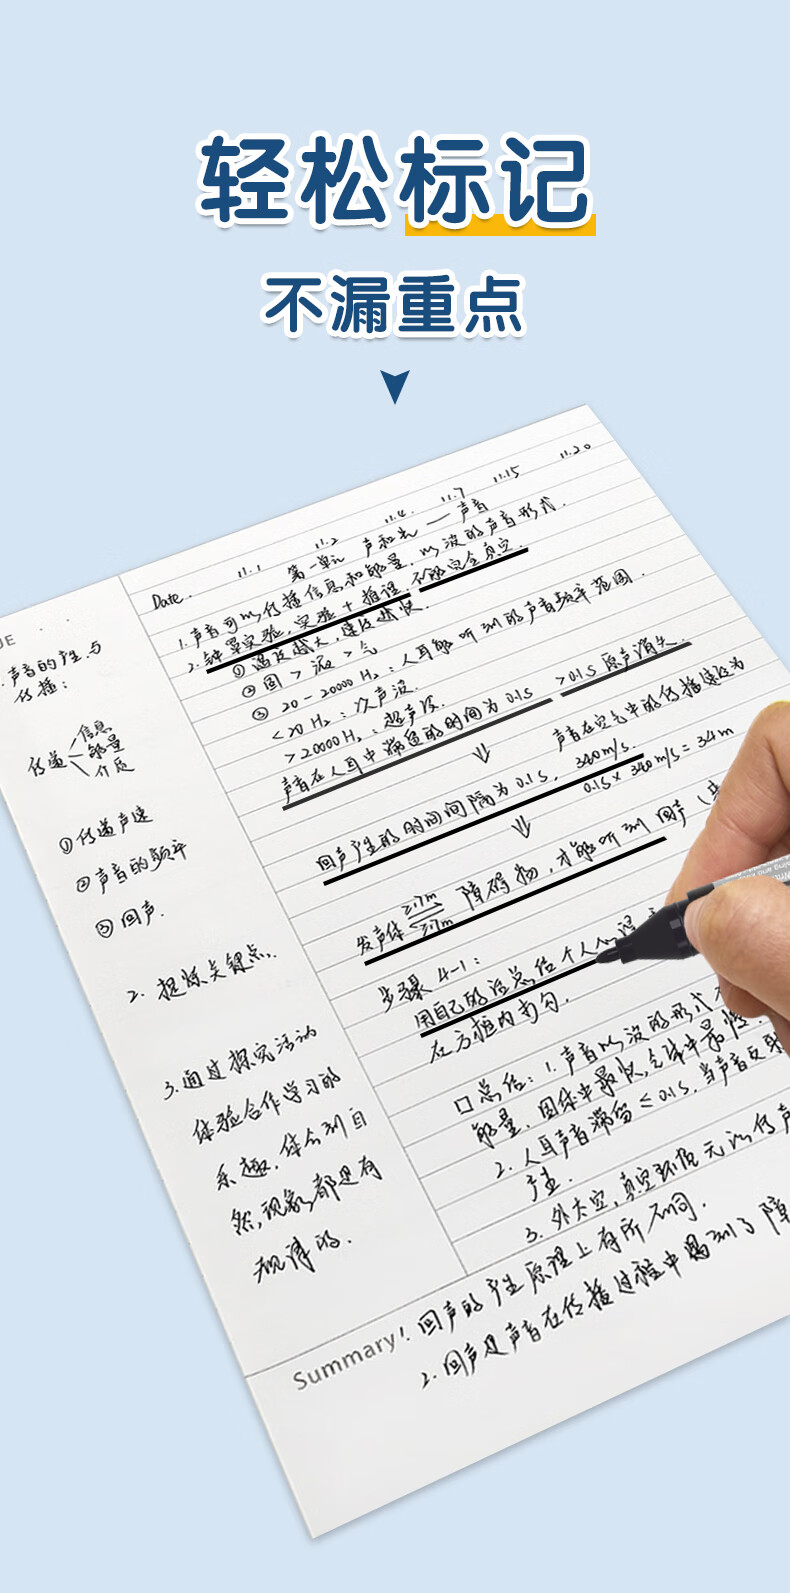 轻松标记
不漏重点
Date. 11.1 11.2 11.4. 11.7 11.15 11.20
第一单元 声和光 — 声音
1. 声音可以传播信息和能量. 以波的声音形式.
2. 钟罩实验, 实验+推理 不能完全真空.
① 温度越大, 速度越快.
② 固 > 液 > 气
③ 20 - 20000 Hz : 人耳能听到的声音频率范围.
< 20 Hz : 次声波.
> 20000 Hz : 超声波.
声音在人耳中滞留的时间为 0.1s >0.1s 原声消失.
声音在空气中的传播速度为
340m/s.
回声产生的时间间隔为 0.1s, 0.1s × 340 m/s = 34 m
发声体 ≥17m ≥17m 障碍物, 才能听到回声
步骤 4-1:
用自己的话总结个人
在方框内
UE
1. 声音的产生与
传播:
传递 信息 能量 介质
① 传递声速
② 声音的频率
③ 回声.
2. 提炼关键点.
3. 通过探究活动
体验合作学习的
乐趣. 体会到自
然现象都是有
规律的.
口总结: 1. 声音以波的形式
能量. 固体中最快, 气体中最慢.
2. 人耳声音滞留 ≤ 0.1s. 当声音反射
产生.
3. 外太空, 真空环境无法传声
Summary! 回声的产生原理上有所不同.
2. 回声是声音在传播过程中遇到了障